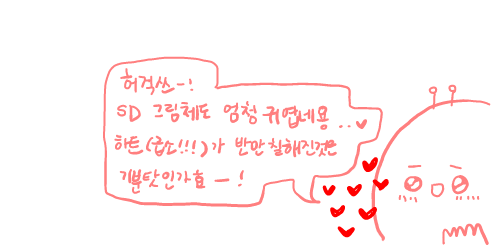 허걱쓰-!
SD 그림체도 엄청 귀엽네용..♥
하트(급소!!!)가 반만 칠해진것은
기분탓인가효-!